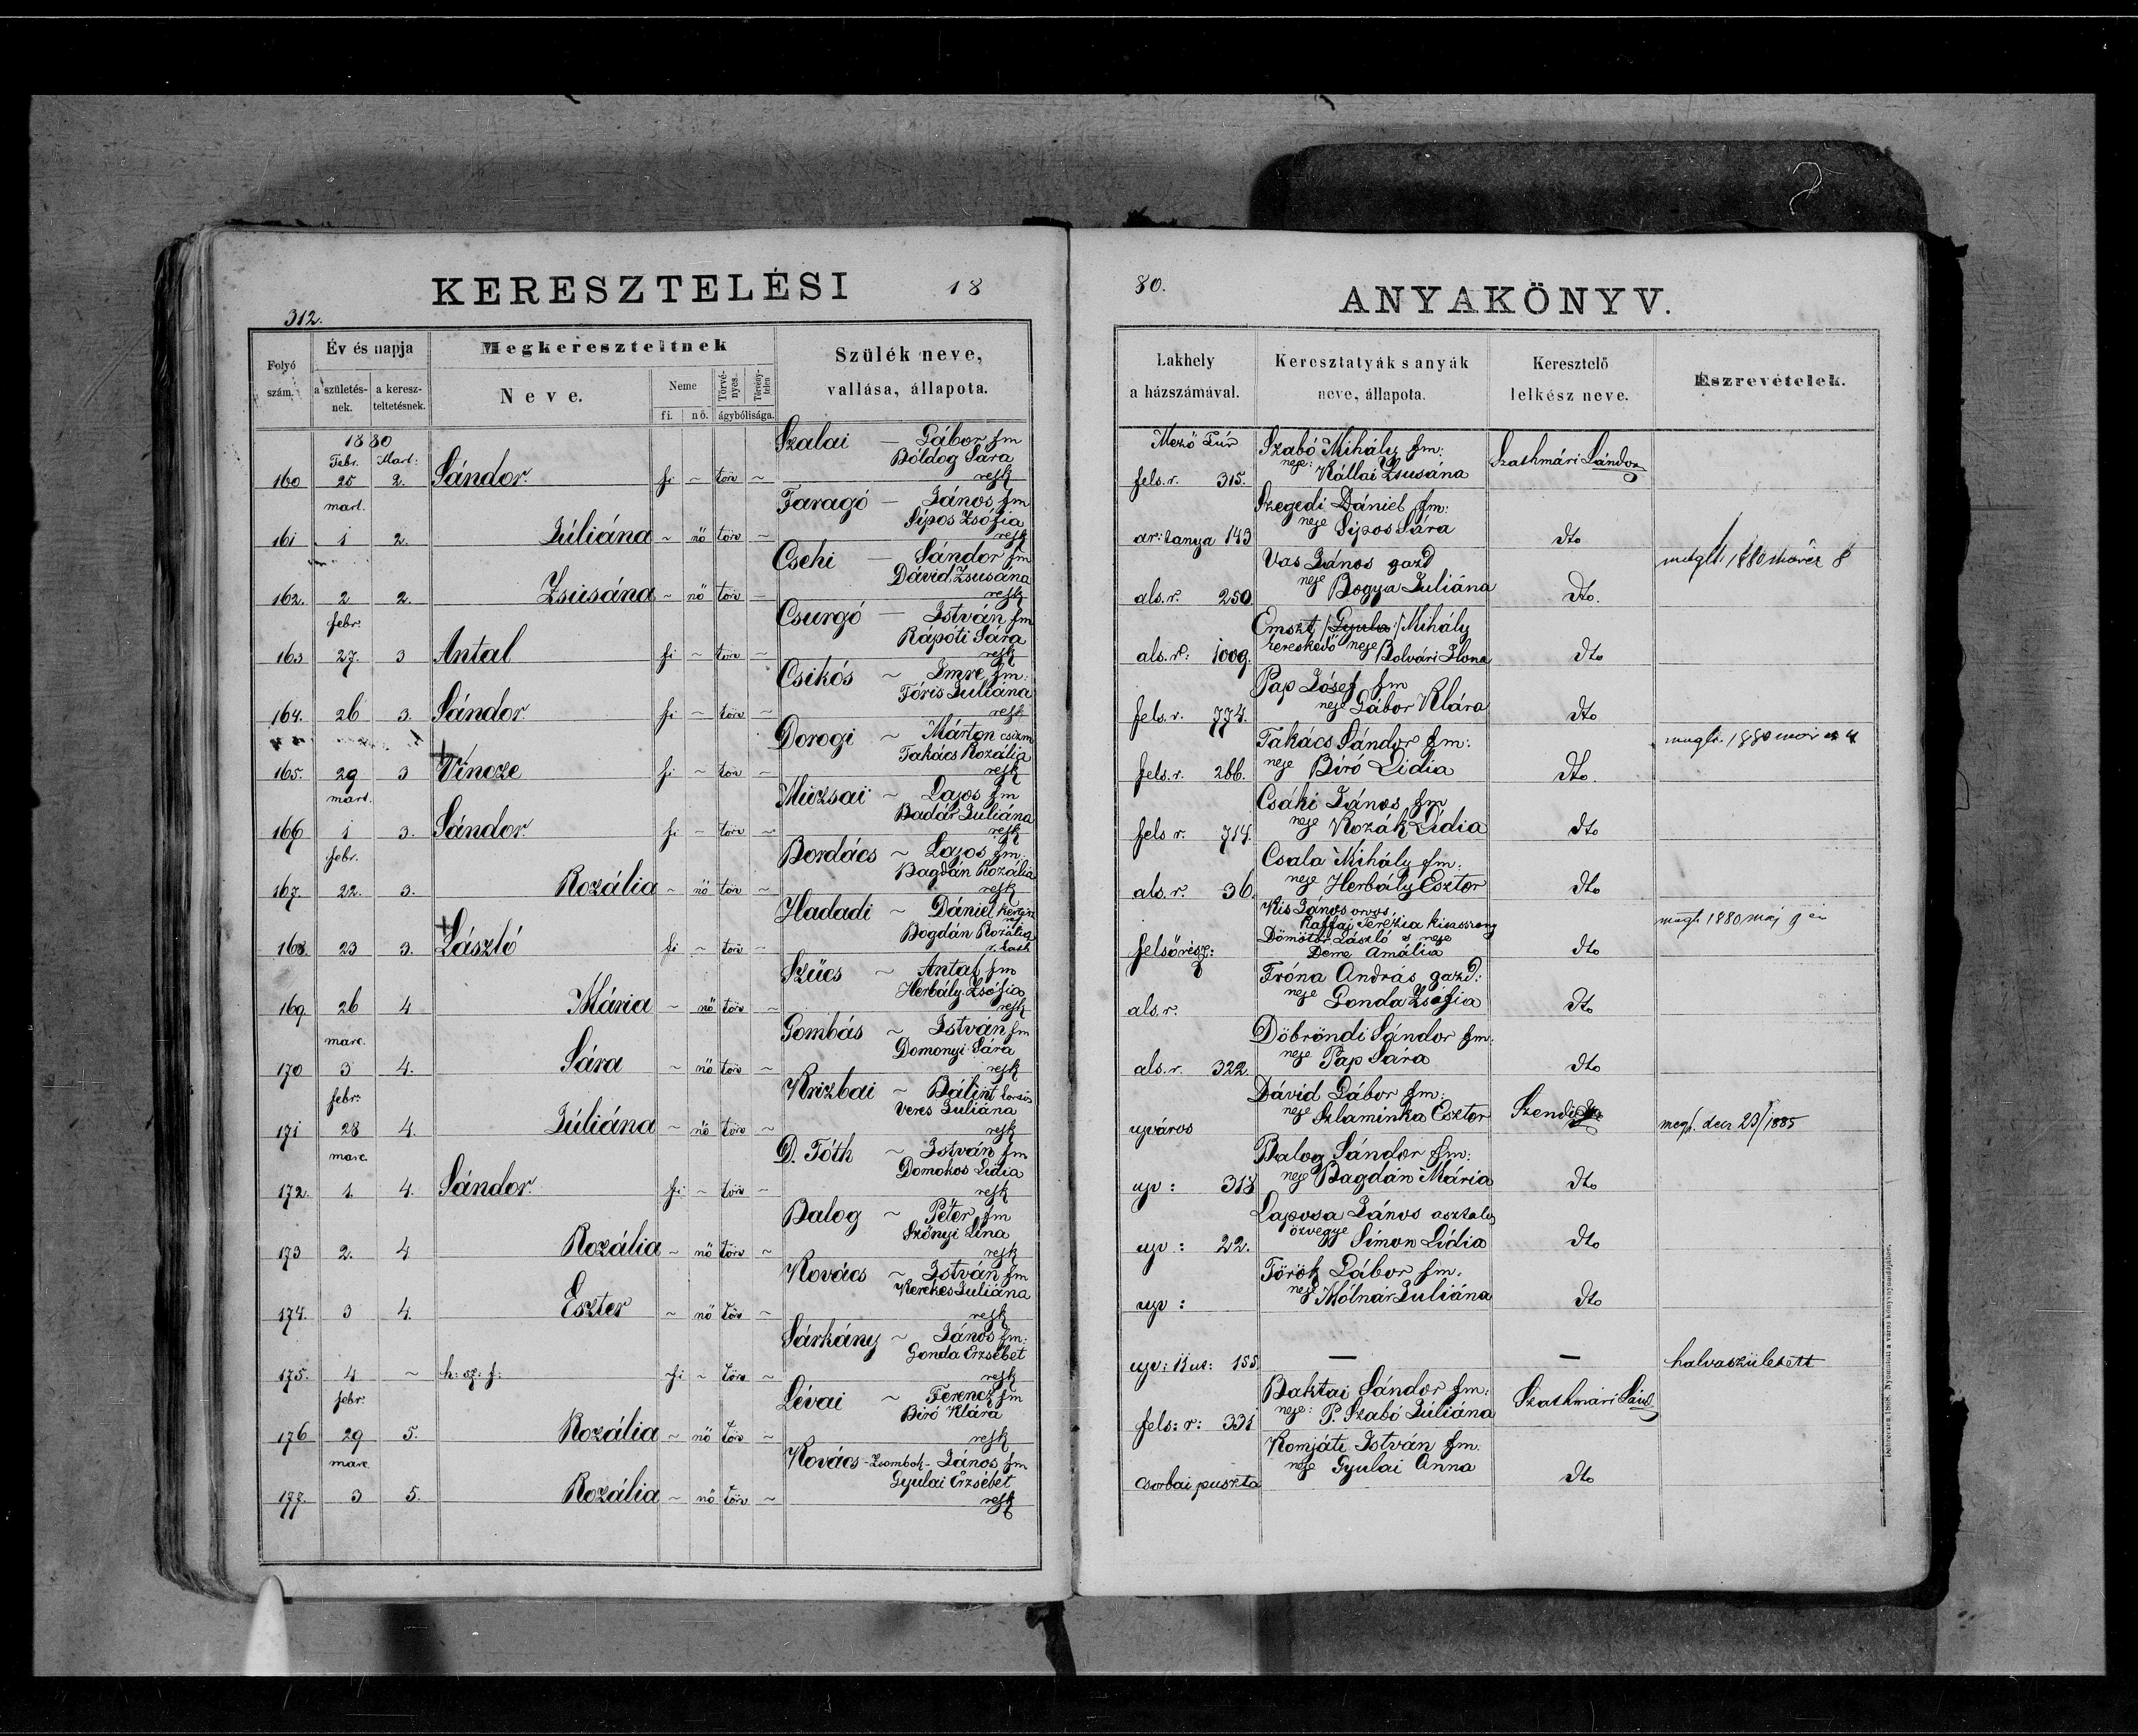 KERESZTELÉSI 18
312.
Folyó szám.
Év és napja
a születés-nek.
a keresz-teltetésnek.
Megkereszteltnek
Neve.
Neme
fi. nő.
Törvé-nyes. Törvény-telen
ágybólisága.
Szülék neve,
vallása, állapota.
80. ANYAKÖNYV.
Lakhely
a házszámával.
Keresztatyák s anyák
neve, állapota.
Keresztelő
lelkész neve.
Észrevételek.
1880
Febr. Mart:
Szalai — Gábor fm
Bóldog Sára
160 25 2. Sándor. fi ~ törv ~ refk
Mező Túr
fels. r. 315.
Szabó Mihály fm:
neje: Kállai Zsusána
Szathmári Sándor
mart.
Faragó — János fm
Sipos Zsófia
161 1 2. Júliána ~ nő törv ~ refk
ar: tanya 143
Szegedi Dániel fm:
neje Sipos Sára
dto
Csehi — Sándor fm
Dávid Zsusána
162. 2 2. Zsusána ~ nő törv — refk
als. r. 250
Vas János gazd
neje Bogya Juliána
dto.
meglt. 1880 március 8
febr.
Csurgó — István fm
Rápóti Sára
163 27. 3 Antal fi ~ törv ~ refk
als. r: 1009.
Emszt /:Gyula:/ Mihály
kereskedő neje Bolvári Ilona
dto
Csikós ~ Imre fm:
Fóris Juliána
164. 26 3. Sándor. fi ~ törv ~ refk
fels. r. 774.
Pap József fm
neje Gábor Klára
dto
Dorogi ~ Márton csizm
Takács Rozália
165. 29 3 Vincze fi ~ törv ~ refk
fels. r. 266.
Takács Sándor fm:
neje Biró Lidia
dto
mart.
Miczsai ~ Lajos fm
Badár Juliána
166 1 3. Sándor. fi ~ törv ~ refk
fels r. 714.
Csáki János fm
neje Kozák Lidia
dto
febr.
Bordács ~ Lajos fm.
Bagdán Rozália
167. 22. 3. Rozália ~ nő törv ~ refk
als. r. 36.
Csala Mihály fm.
neje Herbály Eszter
dto
Hadadi ~ Dániel
Bogdán Rozália
r. kath
168. 23 3. László fi ~ törv ~
felsőrész:
Kis János orvos,
Kaffai Terézia kisasszony
Dömötör László s neje
Deme Amália
dto
megh. 1880 máj 9 én
Szűcs ~ Antal fm
Herbály Zsófia
169 26 4 Mária ~ nő törv ~ refk
als. r.
Tróna András gazd:
neje Gonda Zsófia
dto
marc.
Gombás ~ István fm
Domonyi Sára
170 3 4. Sára ~ nő törv ~ refk
als. r. 322.
Döbröndi Sándor fm:
neje Pap Sára
dto
febr:
Krizbai ~ Bálint
Veres Juliána
171 28 4. Júliána ~ nő törv ~ refk
ujváros
Dávid Gábor fm:
neje Szlaminka Eszter
megh. dec 29/1885
marc.
D. Tóth ~ István fm
Domokos Lidia
172. 1. 4. Sándor. fi ~ törv ~ refk
ujv: 318
Balog Sándor fm:
neje Bagdán Mária
dto
Balog ~ Péter fm
Szőnyi Lina
173 2. 4 Rozália ~ nő törv ~ refk
ujv: 22.
Laposa János asztalos
özvegye Simon Lidia
dto
Kovács ~ István fm
Kerekes Juliána
174. 3 4. Eszter ~ nő törv ~ refk
ujv:
Török Gábor fm.
neje Mólnár Juliána
dto
Sárkány ~ János fm:
Gonda Erzsébet
175. 4 ~ h: sz: f: fi ~ törv ~ refk
155 — — halvaszületett
febr.
Lévai ~ Ferencz fm
Biró Klára
176 29 5. Rozália ~ nő törv ~ refk
fels: r: 331
Baktai Sándor fm:
neje: P. Szabó Júliána
Szathmári Sánd
marc
Kovács - Zsombok - János fm
Gyulai Erzsébet
177. 3 5. Rozália ~ nő törv ~ refk
Csorbai puszta
Komjáti István fm.
neje Gyulai Anna
dto
Debreczen 1868. Nyomatott a város könyvnyomdájában.